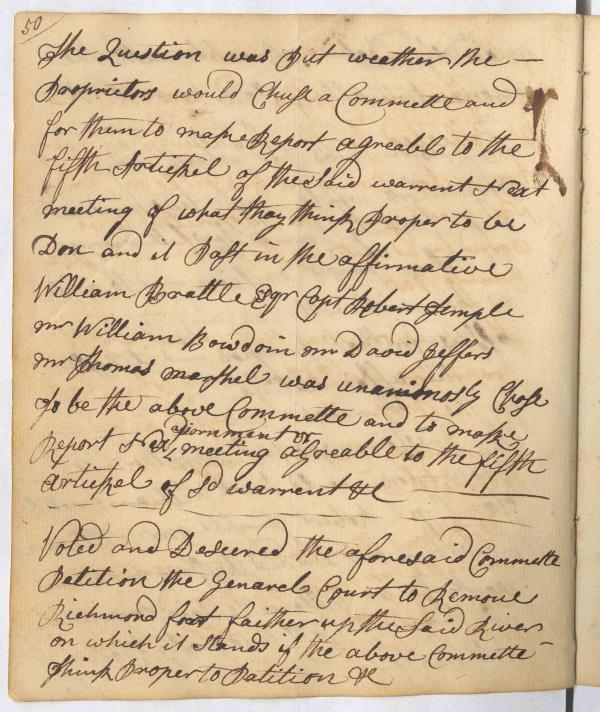 50
The Question was Put weather the —
Proprietors would Chuse a Commette and
for them to make Report agreable to the
fifth Artickel of the Said warrent Next
meeting of what thay think Proper to be
Don and it Past in the affirmative
William Brattle Esqr Capt Robert Temple
mr William Bowdoin mr David Jeffers
mr Thomas marshel was unanimosly Chose
to be the above Commette and to make
ajornment or
Report Next meeting agreable to the fifth
Artickel of Sd warrent &c
Voted and Deseered the aforesaid Commette
Patition the Genarel Court to Remove
Richmond foart faither up the Said River
on which it Stands if the above Commette
think Proper to Patition &c